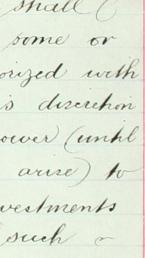 shall (
some or
orized with
s discretion
ower (until
arise) to
vestments
such